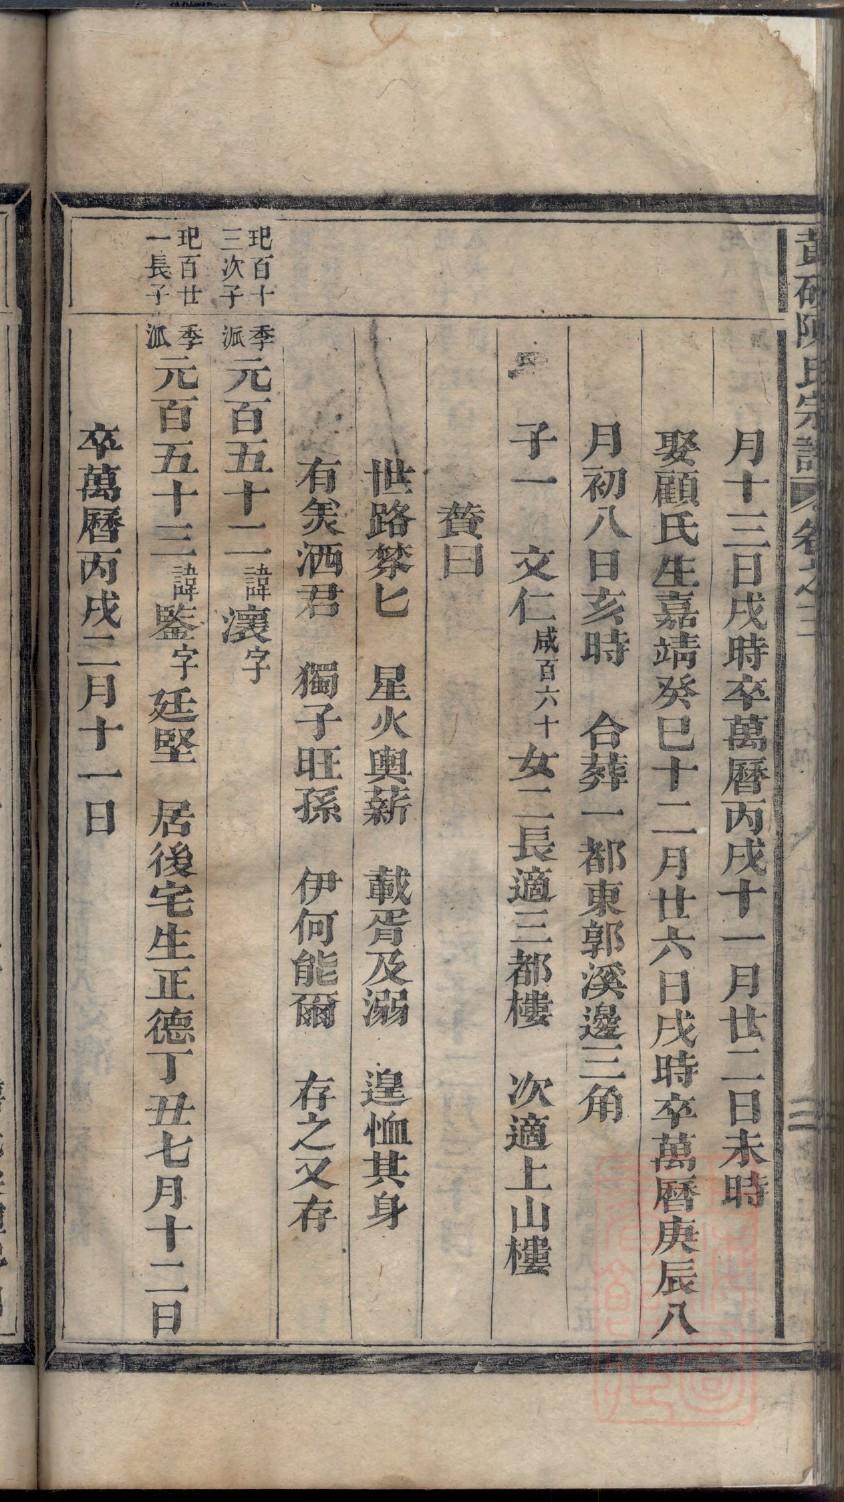 陳氏宗譜 卷之三
月十三日戌時卒萬曆丙戌十一月廿二日未時
娶顧氏生嘉靖癸巳十二月廿六日戌時卒萬曆庚辰八
月初八日亥時 合葬一都東郭溪邊三角
子一 文仁咸百六十 女二長適三都樓 次適上山樓
贊曰
世路棼匕 星火輿薪 載胥及溺 遑恤其身
有美洒君 獨子旺孫 伊何能爾 存之又存
玘百十三次子 季派 元百五十二 諱瀼 字
玘百廿一長子 季派 元百五十三 諱鑒 字廷堅 居後宅生正德丁丑七月十二日
卒萬曆丙戌二月十一日